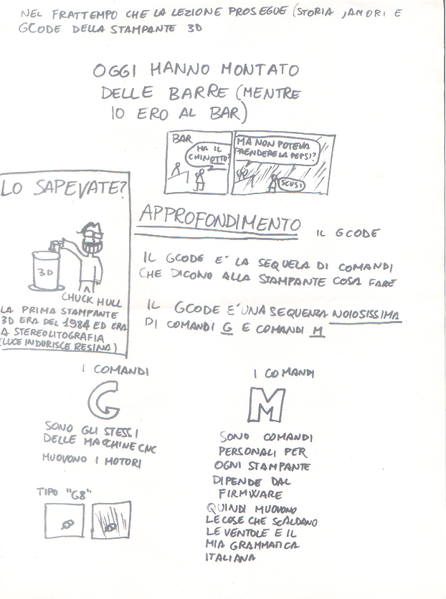 NEL FRATTEMPO CHE LA LEZIONE PROSEGUE (STORIA, AMORI E
GCODE DELLA STAMPANTE 3D
OGGI HANNO MONTATO
DELLE BARRE (MENTRE
IO ERO AL BAR)
BAR
MA IL
CHINOTTO?
MA NON POTEVA
PRENDERE LA PEPSI?
SCUSI
LO SAPEVATE?
3D
CHUCK HULL
LA PRIMA STAMPANTE
3D ERA DEL 1984 ED ERA
A STEREOLITOGRAFIA
(LUCE INDURISCE RESINA)
APPROFONDIMENTO IL GCODE
IL GCODE E' LA SEQUELA DI COMANDI
CHE DICONO ALLA STAMPANTE COSA FARE
IL GCODE E' UNA SEQUENZA NOIOSISSIMA
DI COMANDI G E COMANDI M
I COMANDI
G
SONO GLI STESSI
DELLE MACCHINE CNC
MUOVONO I MOTORI
TIPO "G8"
I COMANDI
M
SONO COMANDI
PERSONALI PER
OGNI STAMPANTE
DIPENDE DAL
FIRMWARE
QUINDI MUOVONO
LE COSE CHE SCALDANO
LE VENTOLE E IL
MIA GRAMMATICA
ITALIANA